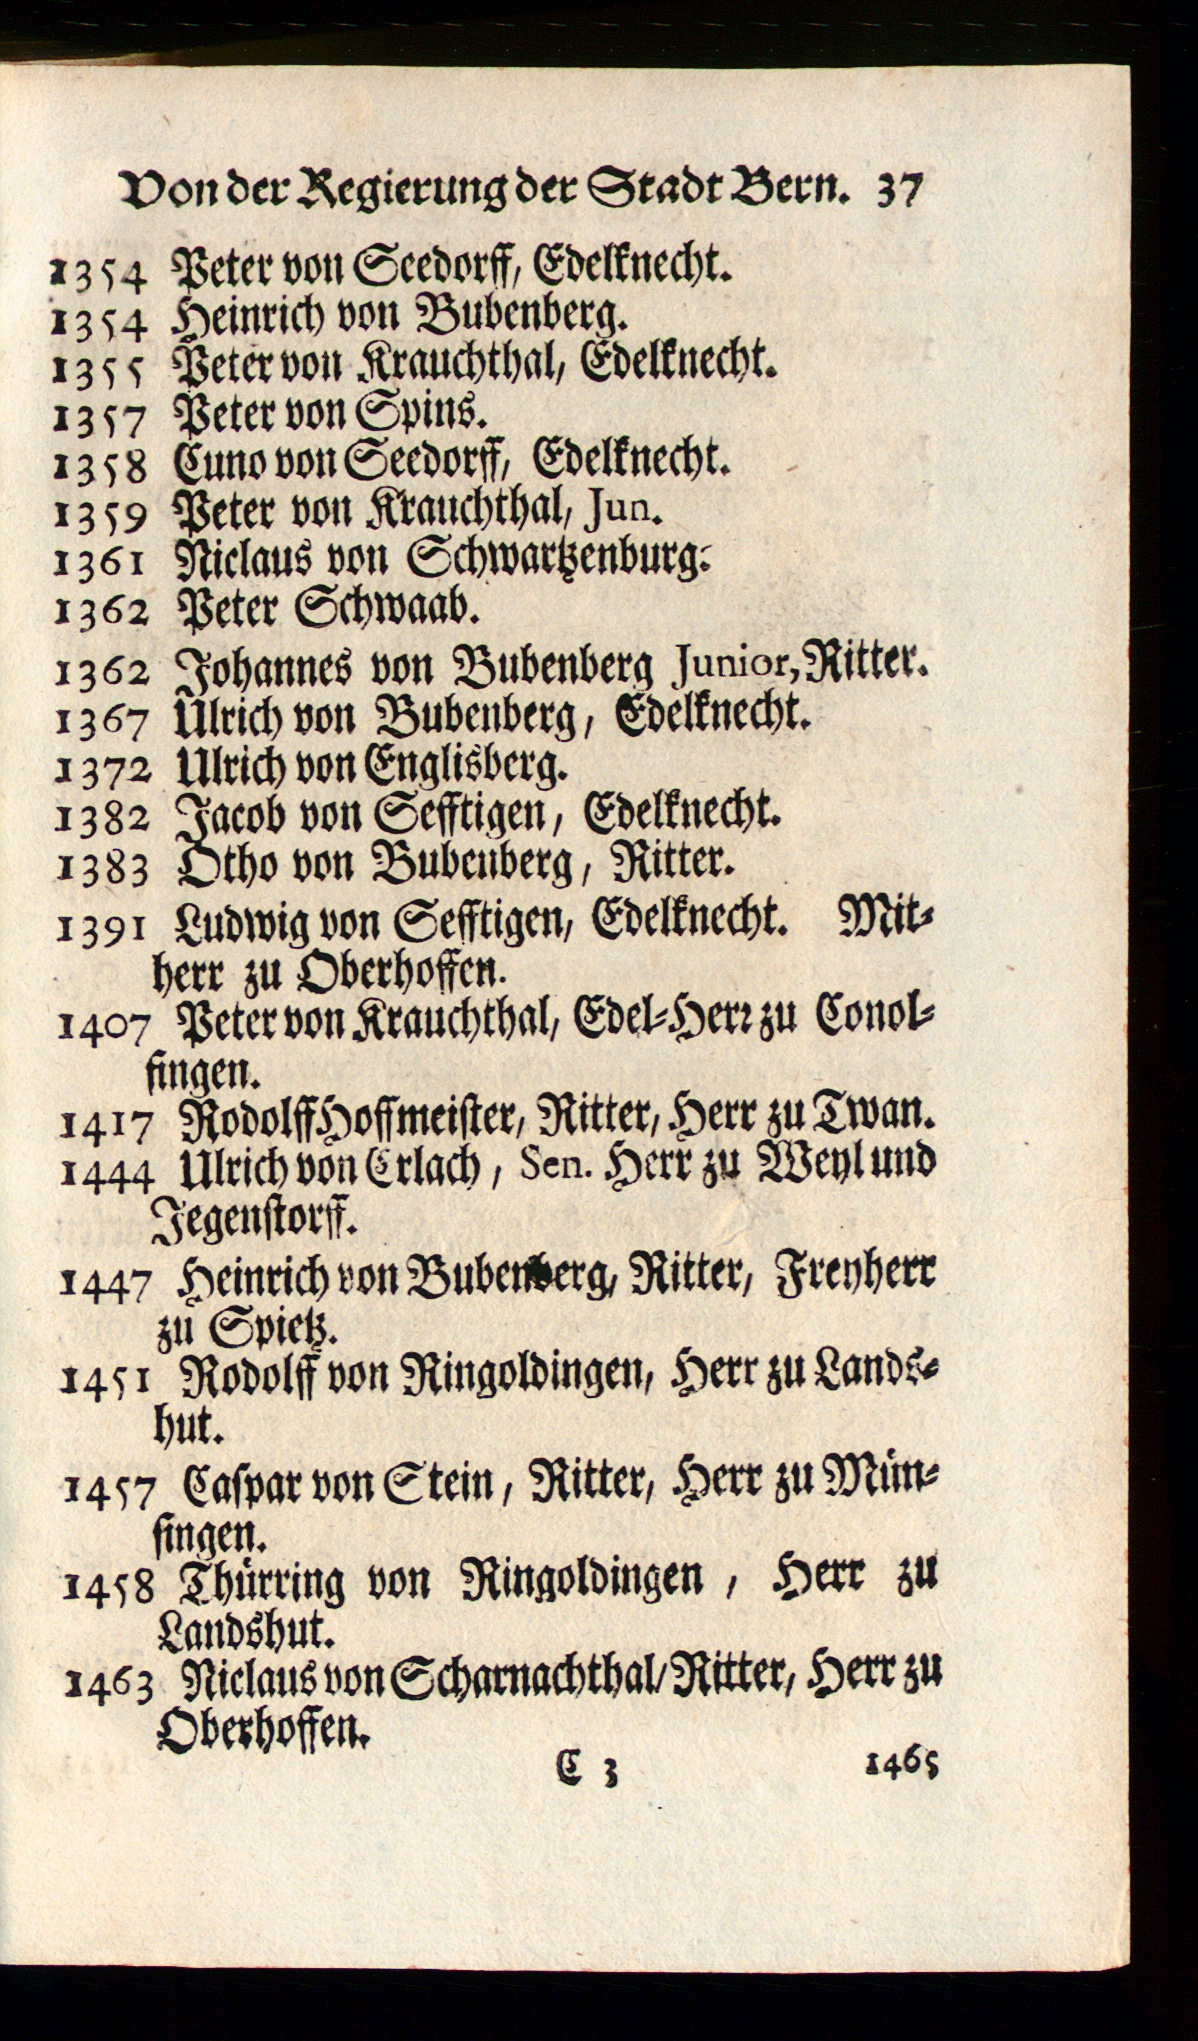 Von der Regierung der Stadt Bern. 37
1354 Peter von Seedorff, Edelknecht.
1354 Heinrich von Bubenberg.
1355 Peter von Krauchthal, Edelknecht.
1357 Peter von Spins.
1358 Cuno von Seedorff, Edelknecht.
1359 Peter von Krauchthal, Jun.
1361 Niclaus von Schwartzenburg.
1362 Peter Schwaab.
1362 Johannes von Bubenberg Junior, Ritter.
1367 Ulrich von Bubenberg, Edelknecht.
1372 Ulrich von Englisberg.
1382 Jacob von Sefftigen, Edelknecht.
1383 Otho von Bubenberg, Ritter.
1391 Ludwig von Sefftigen, Edelknecht. Mit-
herr zu Oberhoffen.
1407 Peter von Krauchthal, Edel-Herr zu Conol-
fingen.
1417 Rodolff Hoffmeister, Ritter, Herr zu Twan.
1444 Ulrich von Erlach, Sen. Herr zu Weyl und
Jegenstorff.
1447 Heinrich von Bubenberg, Ritter, Freyherr
zu Spietz.
1451 Rodolff von Ringoldingen, Herr zu Lands-
hut.
1457 Caspar von Stein, Ritter, Herr zu Mün-
singen.
1458 Thürring von Ringoldingen, Herr zu
Landshut.
1463 Niclaus von Scharnachthal/ Ritter, Herr zu
Oberhoffen.
C 3 1465